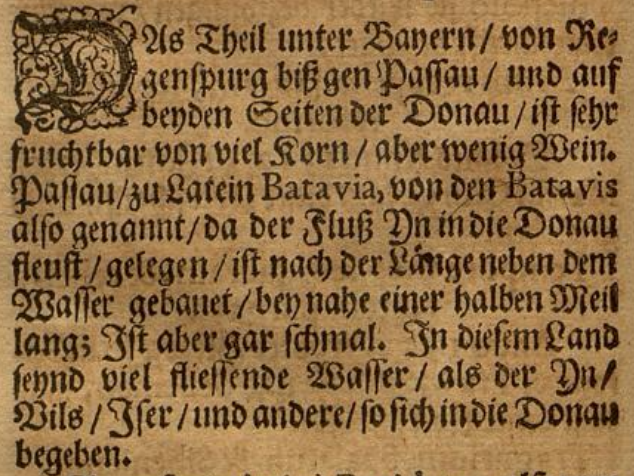 DAs Theil unter Bayern / von Re-
genspurg biß gen Passau / und auf
beyden Seiten der Donau / ist sehr
fruchtbar von viel Korn / aber wenig Wein.
Passau/zu Latein Batavia, von den Batavis
also genannt/da der Fluß Yn in die Donau
fleust / gelegen / ist nach der Länge neben dem
Wasser gebauet / bey nahe einer halben Meil
lang; Ist aber gar schmal. In diesem Land
seynd viel fliessende Wasser / als der Yn/
Vils / Iser / und andere/ so sich in die Donau
begeben.